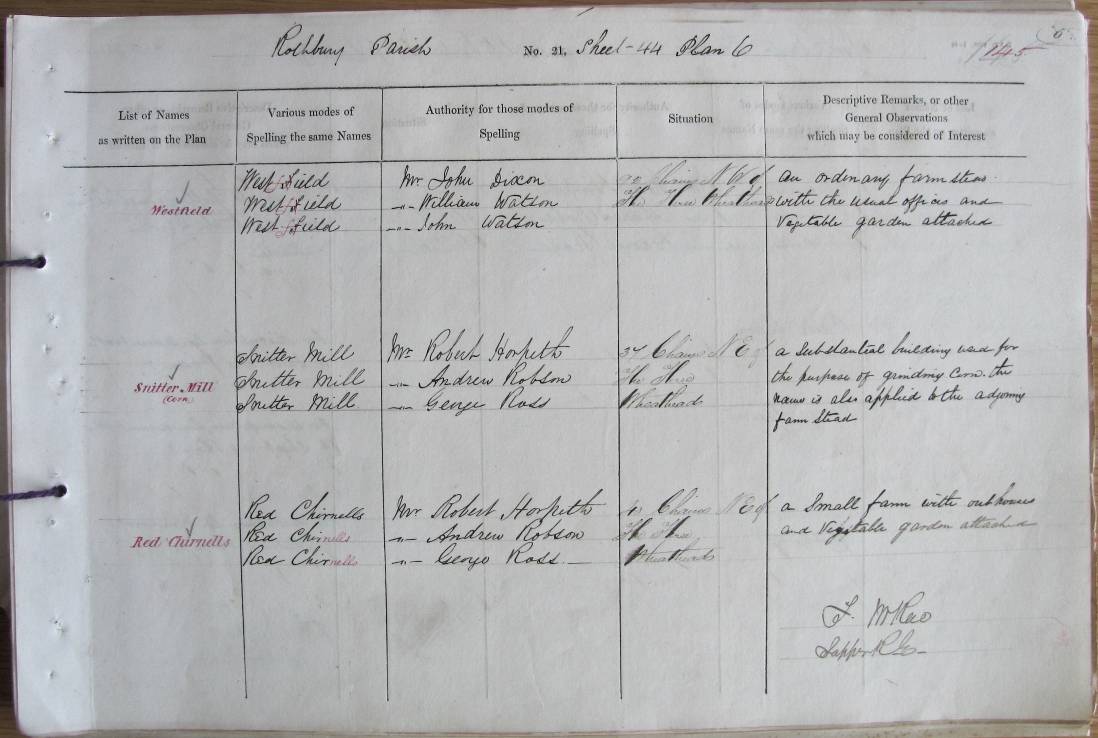 Rothbury Parish No. 21, Sheet 44 Plan 6
145
List of Names
as written on the Plan
Various modes of
Spelling the same Names
Authority for those modes of
Spelling
Situation
Descriptive Remarks, or other
General Observations
which may be considered of Interest
Westfield
West field
West field
West field
Mr. John Dixon
-"- William Watson
-"- John Watson
90 Chains N W of
the Three Wheatheads
an ordinary farm stead
with the usual offices and
Vegetable garden attached
Snitter Mill
(Corn)
Snitter Mill
Snitter Mill
Snitter Mill
Mr. Robert Horpeth
-"- Andrew Robson
-"- George Ross
37 Chains N E of
the Three
Wheatheads
a Substantial building used for
the purpose of grinding Corn. the
name is also applied to the adjoining
farm Stead
Red Chirnells
Red Chirnells
Red Chirnells
Red Chirnells
Mr. Robert Horpeth
-"- Andrew Robson
-"- George Ross
Chains N E of
the Three
Wheatheads
a Small farm with outhouses
and Vegetable garden attached
McRae
Sapper R.E.